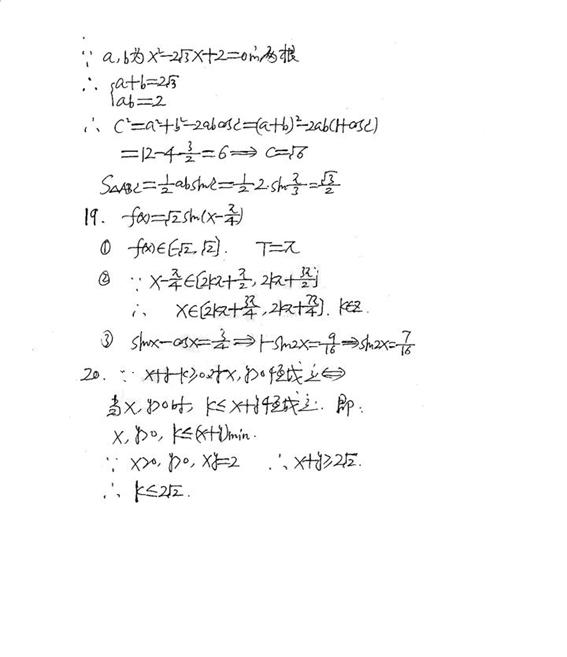 ∵ a,b为x²-2√3x+2=0的两根
∴ {a+b=2√3
ab=2
∴ C²=a²+b²-2abcosC=(a+b)²-2ab(1+cosC)
=12-4·3/2=6⟹C=√6
S△ABC=1/2absinC=1/2·2·sinπ/3=√3/2
19. f(x)=√2sin(x-π/4)
① f(x)∈[-√2,√2]. T=π
② ∵ x-π/4∈[2kπ+π/2, 2kπ+3π/2]
∴ x∈[2kπ+3π/4, 2kπ+7π/4]. k∈Z.
③ sinx-cosx=3/4⟹1-sin2x=9/16⟹sin2x=7/16
20. ∵ x+y-k≥0对x,y>0恒成立⟺
当x,y>0时, k≤x+y恒成立. 即:
x,y>0, k≤(x+y)min.
∵ x>0, y>0, xy=2 ∴ x+y≥2√2.
∴ k≤2√2.